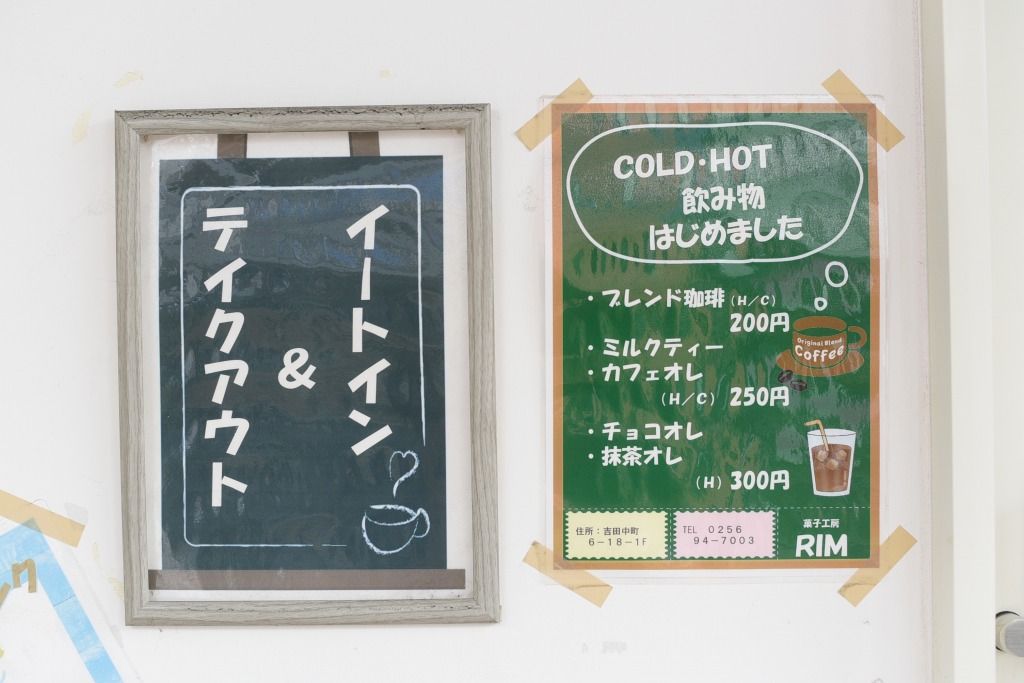 イートイン
&
テイクアウト
COLD・HOT
飲み物
はじめました
・ブレンド珈琲(H/C)
200円
・ミルクティー
・カフェオレ
(H/C) 250円
・チョコオレ
・抹茶オレ
(H) 300円
Original Blend
Coffee
住所:吉田中町
6-18-1F
TEL 0256
94-7003
菓子工房
RIM